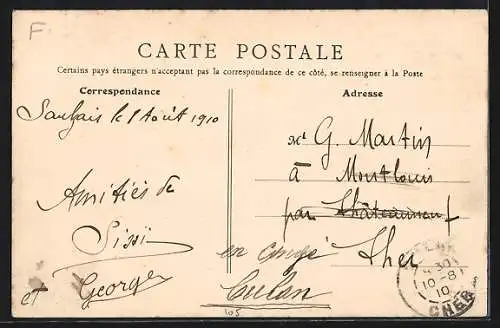 F
CARTE POSTALE
Certains pays étrangers n'acceptant pas la correspondance de ce côté, se renseigner à la Poste
Correspondance
Adresse
le 1 Août 1910
Mr G. Martin
à Montlouis
par Châteauneuf
Cher
Amitiés de
Sissi
et Georges
en congé
Culan
105
10-8
10
CHER